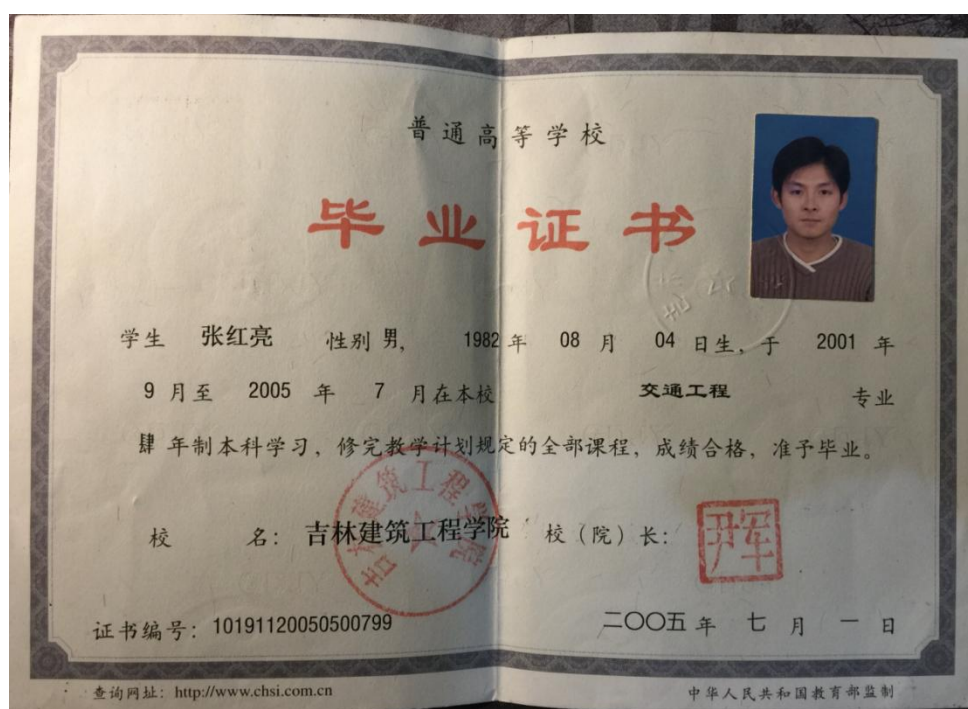 普通高等学校
毕业证书
学生 张红亮 性别 男, 1982 年 08 月 04 日生, 于 2001 年
9 月至 2005 年 7 月在本校 交通工程 专业
肆 年制本科学习, 修完教学计划规定的全部课程, 成绩合格, 准予毕业。
校 名: 吉林建筑工程学院 校(院)长:
吉林建筑工程学院
证书编号: 10191120050500799 二〇〇五 年 七 月 一 日
查询网址: http://www.chsi.com.cn 中华人民共和国教育部监制